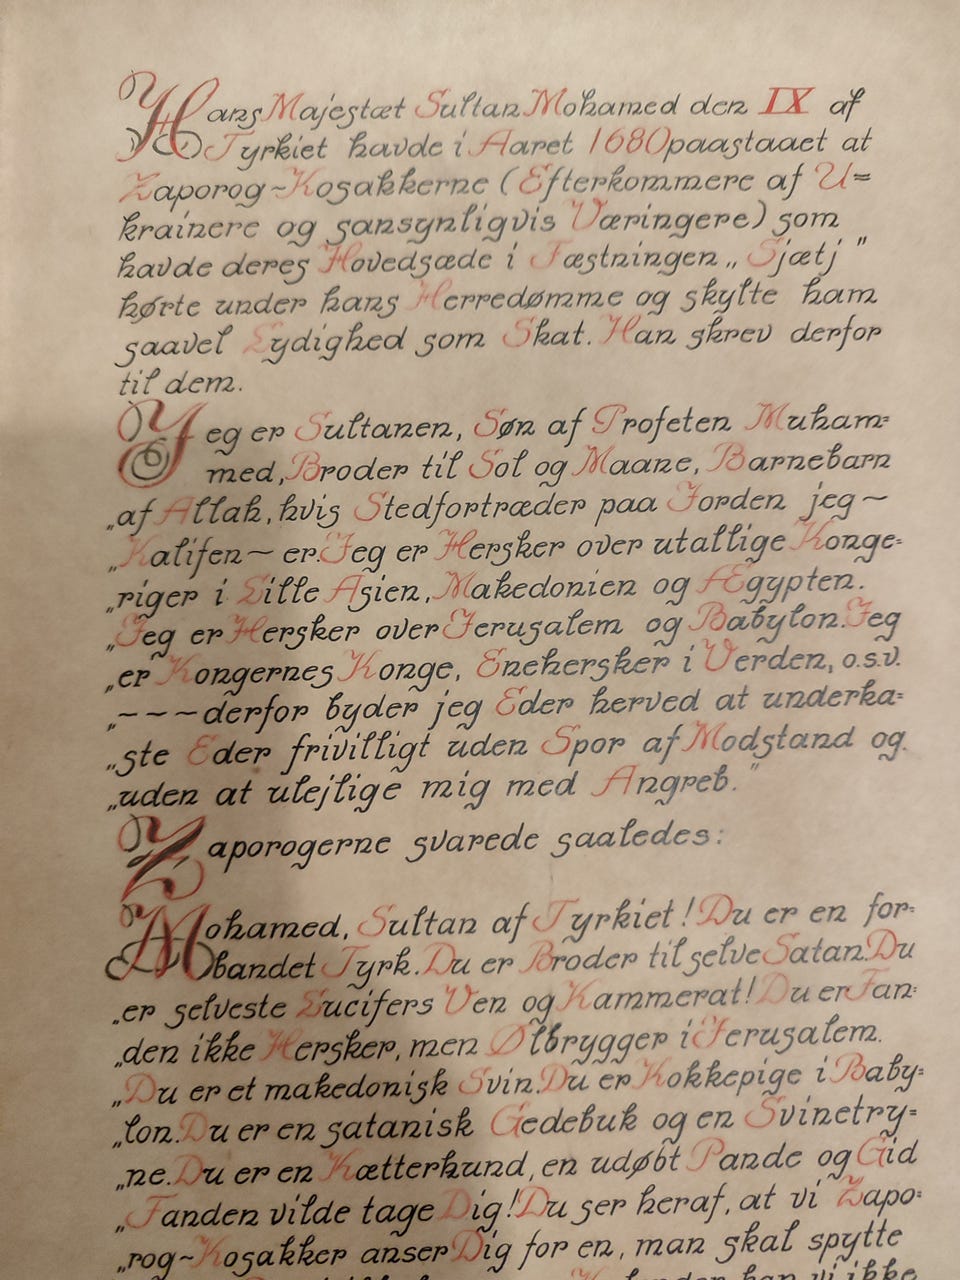 Hans Majestæt Sultan Mohamed den IX af
Tyrkiet havde i Aaret 1680 paastaaet at
Zaporog~Kosakkerne (Efterkommere af U=
krainere og sansynligvis Væringere) som
havde deres Hovedsæde i Fæstningen „Sjætj"
hørte under hans Herredømme og skylte ham
saavel Lydighed som Skat. Han skrev derfor
til dem.
Jeg er Sultanen, Søn af Profeten Muham=
med, Broder til Sol og Maane, Barnebarn
„af Allah, hvis Stedfortræder paa Jorden jeg~
„Kalifen~ er. Jeg er Hersker over utallige Konge=
„riger i Lille Asien, Makedonien og Ægypten.
„Jeg er Hersker over Jerusalem og Babylon. Jeg
„er Kongernes Konge, Enehersker i Verden, o.s.v.
„~~~derfor byder jeg Eder herved at underka=
„ste Eder frivilligt uden Spor af Modstand og
„uden at ulejlige mig med Angreb."
Zaporogerne svarede saaledes:
Mohamed, Sultan af Tyrkiet! Du er en for=
bandet Tyrk. Du er Broder til selve Satan. Du
„er selveste Lucifers Ven og Kammerat! Du er Fan=
„den ikke Hersker, men Ølbrygger i Jerusalem.
„Du er et makedonisk Svin. Du er Kokkepige i Baby=
„lon. Du er en satanisk Gedebuk og en Svinetry=
„ne. Du er en Kætterhund, en udøbt Pande og Gid
„Fanden vilde tage Dig! Du ser heraf, at vi Zapo=
„rog~Kosakker anser Dig for en, man skal spytte
kan vi ikke